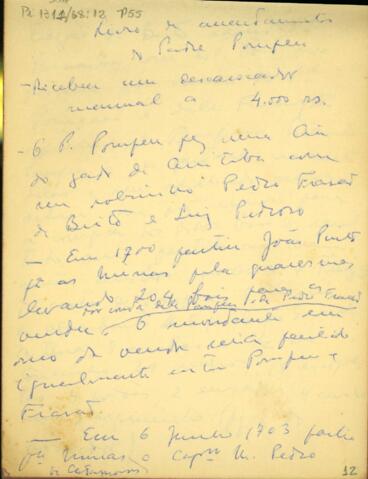 Pi 1314/68:12 P55
Livro de assentamentos
do Padre Pompeu
- Recebeu um descaroçador
manual a 4.000 rs.
- O P. Pompeu fez uma Cia
do gado de Curitiba com
seu sobrinho Pedro Frasão
de Brito e Luiz Pedroso
- Em 1700 partiu João Pinto
pª as Minas pela quaresma
levando 204 bois para os
por conta de Pompeu e de Pedro Frasão
vender. O montante em
ouro da venda seria partido
igualmente entre Pompeu e
Frasão
- Em 6 Junho 1703 partiu
pª minas o Capm M. Pedro
12